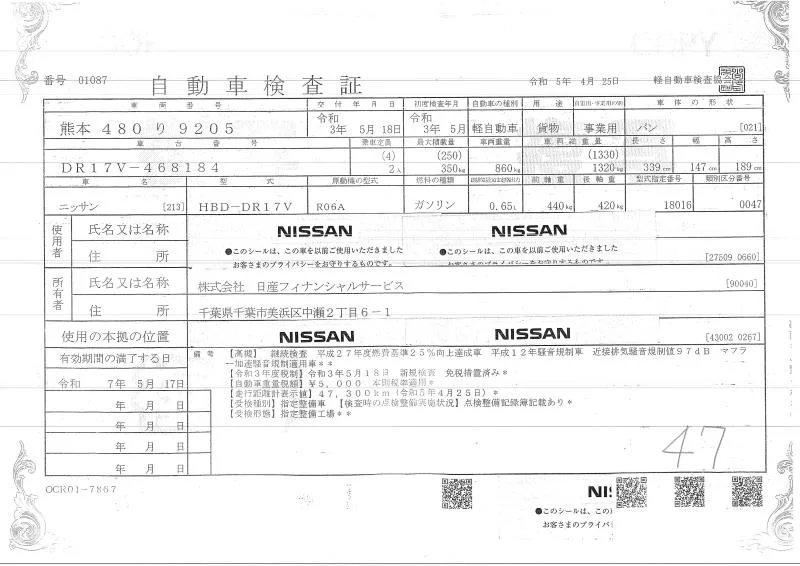 番号 01087
自動車検査証
令和 5年 4月 25日
軽自動車検査協会
車両番号 交付年月日 初度検査年月 自動車の種別 用途 自家用・事業用の別 車体の形状
熊本 480 り 9205 令和 3年 5月 18日 令和 3年 5月 軽自動車 貨物 事業用 バン [021]
車台番号 乗車定員 最大積載量 車両重量 車両総重量 長さ 幅 高さ
DR17V-468184 (4) 2人 (250) 350kg 860kg (1330) 1320kg 339cm 147cm 189cm
車名 型式 原動機の型式 燃料の種類 前軸重 後軸重 型式指定番号 類別区分番号
ニッサン [213] HBD-DR17V R06A ガソリン 0.65L 440kg 420kg 18016 0047
使用者
氏名又は名称 NISSAN NISSAN
●このシールは、この車を以前ご使用いただきました ●このシールは、この車を以前ご使用いただきました
住所 お客さまのプライバシーをお守りするものです。 お客さまのプライバシーをお守りするものです。 [27509 0660]
所有者
氏名又は名称 株式会社 日産フィナンシャルサービス [90040]
住所 千葉県千葉市美浜区中瀬2丁目6-1
使用の本拠の位置 NISSAN NISSAN [43002 0267]
有効期間の満了する日
令和 7年 5月 17日
年 月 日
年 月 日
年 月 日
年 月 日
備考 【高規】 継続検査 平成27年度燃費基準25%向上達成車 平成12年騒音規制車 近接排気騒音規制値97dB マフラ
ー加速騒音規制適用車**
【令和3年度税制】令和3年5月18日 新規検査 免税措置済み*
【自動車重量税額】¥5,000 本則税率適用*
【走行距離計表示値】47,300km(令和5年4月25日)*
【受検種別】指定整備車 【検査時の点検整備実施状況】点検整備記録簿記載あり*
【受検形態】指定整備工場**
47
OCR01-7867
NIS
●このシールは、この
お客さまのプライバ